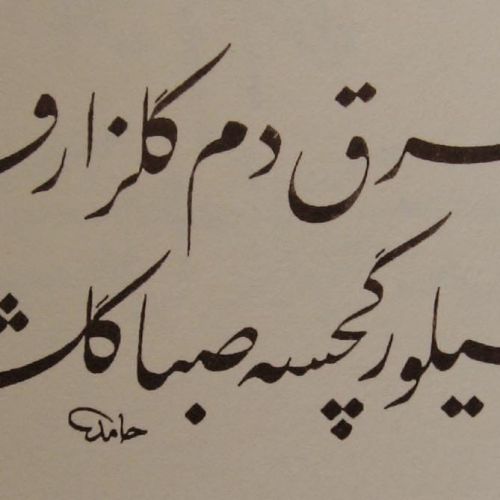 ـرق دم گلزار و
ـیلور گچسه صبا گلشـ
حامد